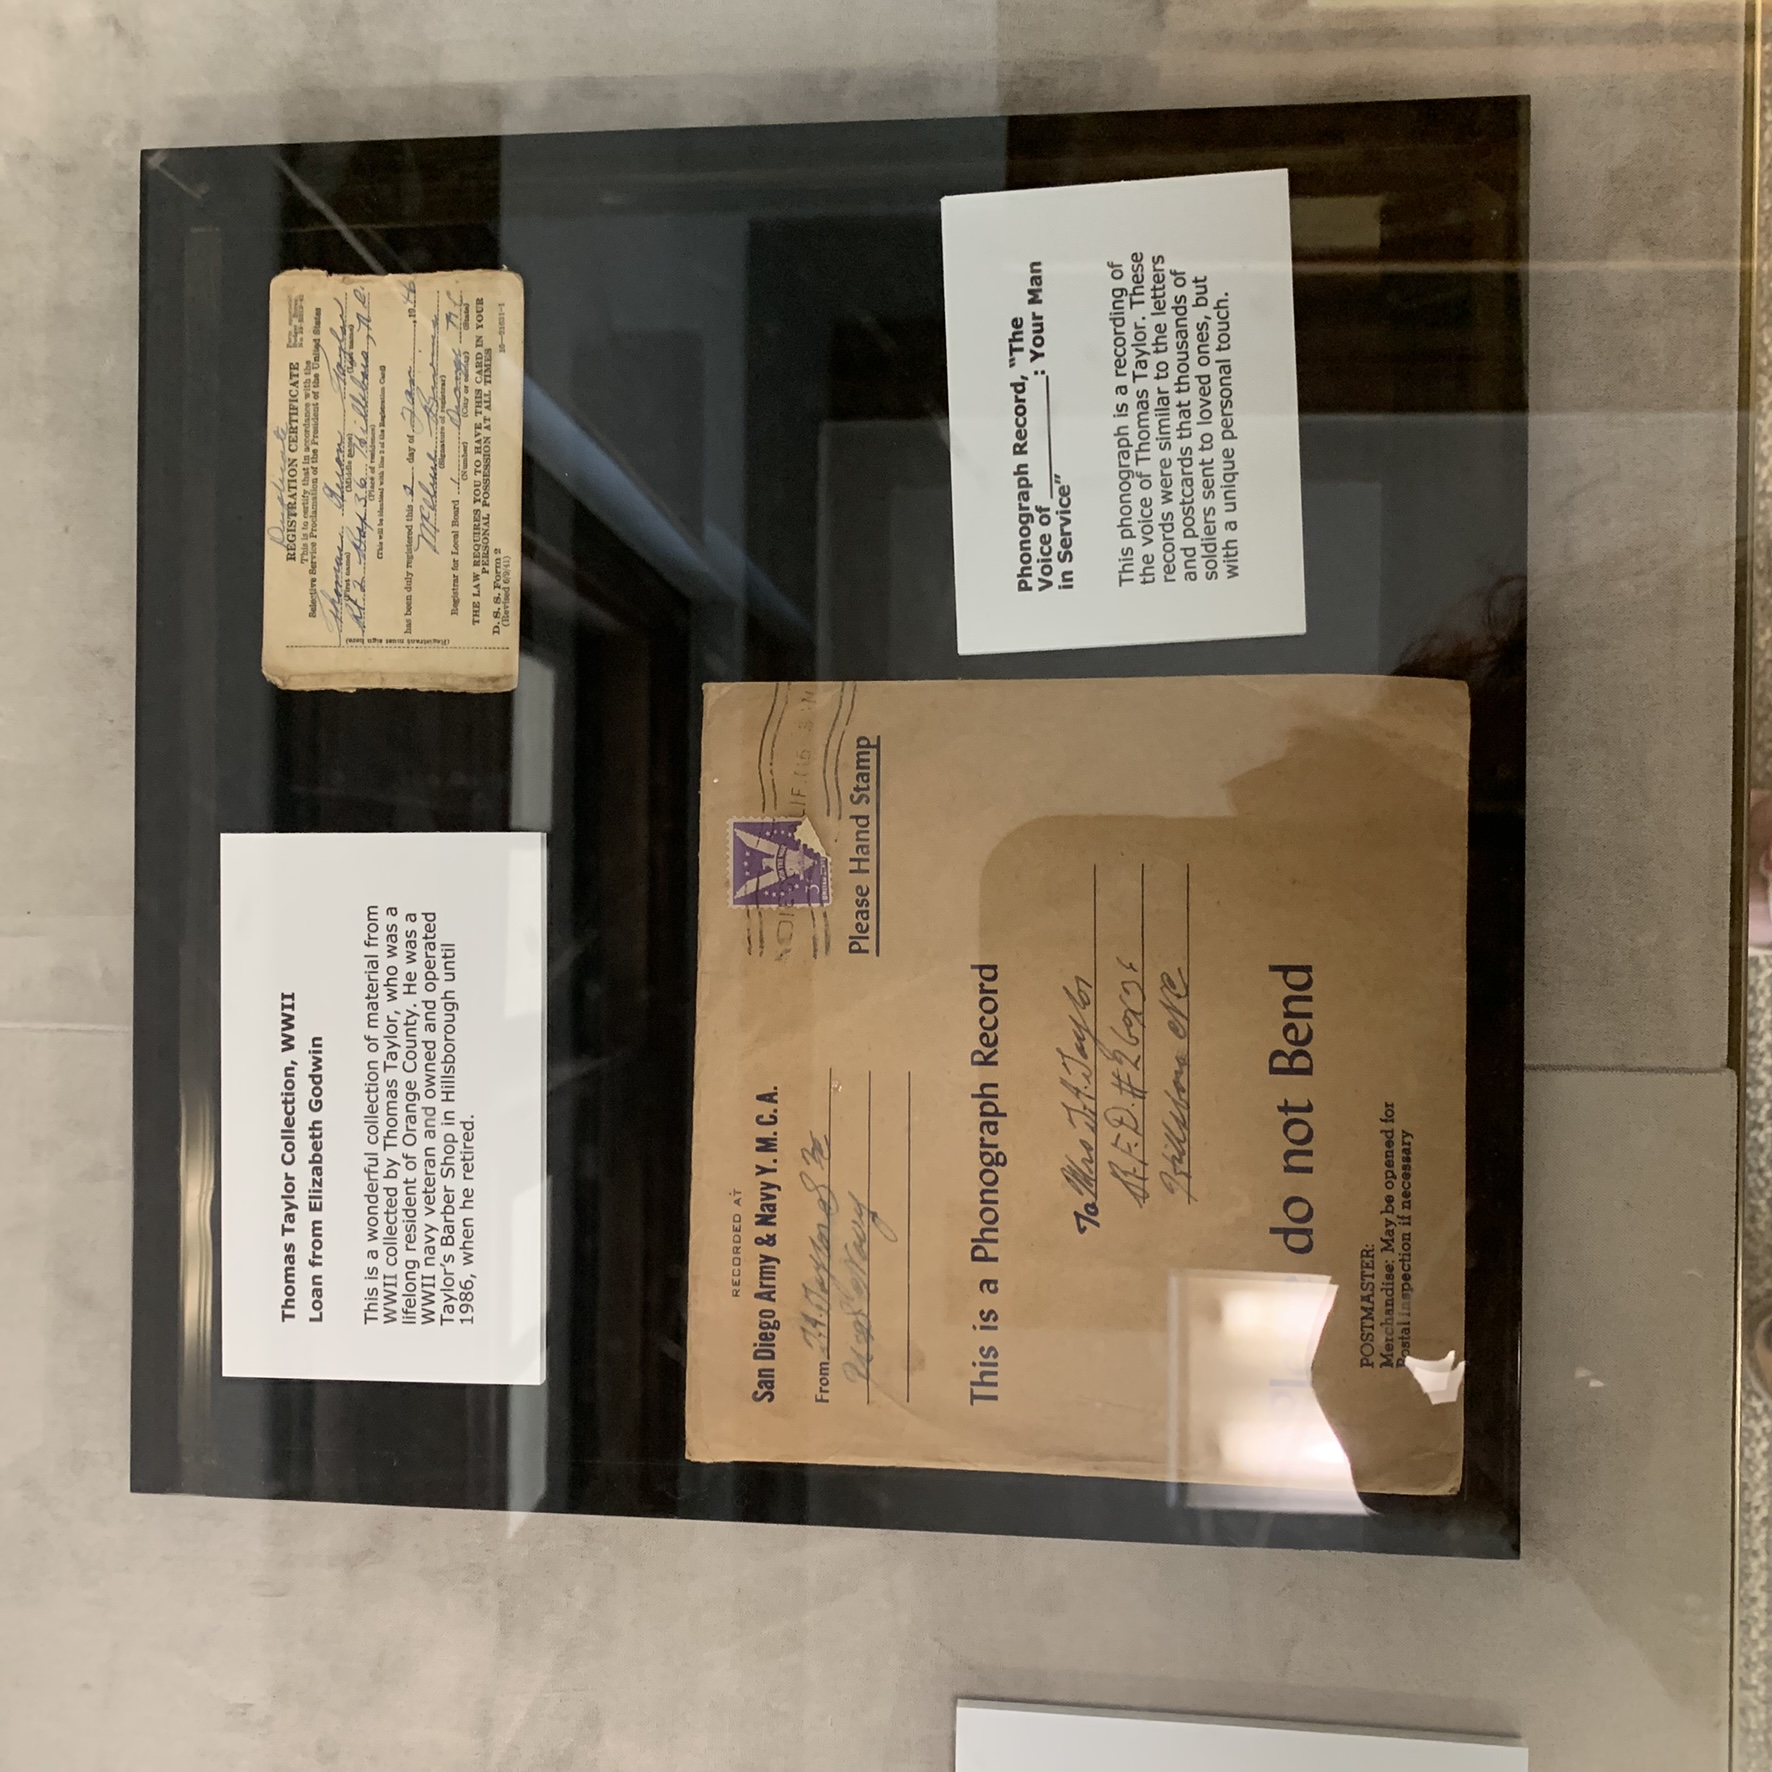 Thomas Taylor Collection, WWII
Loan from Elizabeth Godwin
This is a wonderful collection of material from
WWII collected by Thomas Taylor, who was a
lifelong resident of Orange County. He was a
WWII navy veteran and owned and operated
Taylor's Barber Shop in Hillsborough until
1986, when he retired.
Duplicate
REGISTRATION CERTIFICATE
This is to certify that in accordance with the
Selective Service Proclamation of the President of the United States
Thomas Taylor
(First name) (Middle name) (Last name)
Rt. 2 Box 36 Hillsboro, N.C.
(Place of residence)
(This will be identical with line 2 of the Registration Card)
has been duly registered this 2 day of Jan, 1946
(Signature of registrar)
Registrar for Local Board 1 Orange N C
(Number) (City or county) (State)
THE LAW REQUIRES YOU TO HAVE THIS CARD IN YOUR
PERSONAL POSSESSION AT ALL TIMES
D. S. S. Form 2
(Revised 6/9/41)
16-21631-1
(Registrant must sign here)
RECORDED AT
San Diego Army & Navy Y. M. C. A.
From
Navy
Please Hand Stamp
This is a Phonograph Record
To Mrs T. A. Taylor
R. F. D. # 2 Box 36
Hillsboro N C
do not Bend
POSTMASTER:
Merchandise: May be opened for
Postal Inspection if necessary
Phonograph Record, "The
Voice of ________: Your Man
in Service"
This phonograph is a recording of
the voice of Thomas Taylor. These
records were similar to the letters
and postcards that thousands of
soldiers sent to loved ones, but
with a unique personal touch.